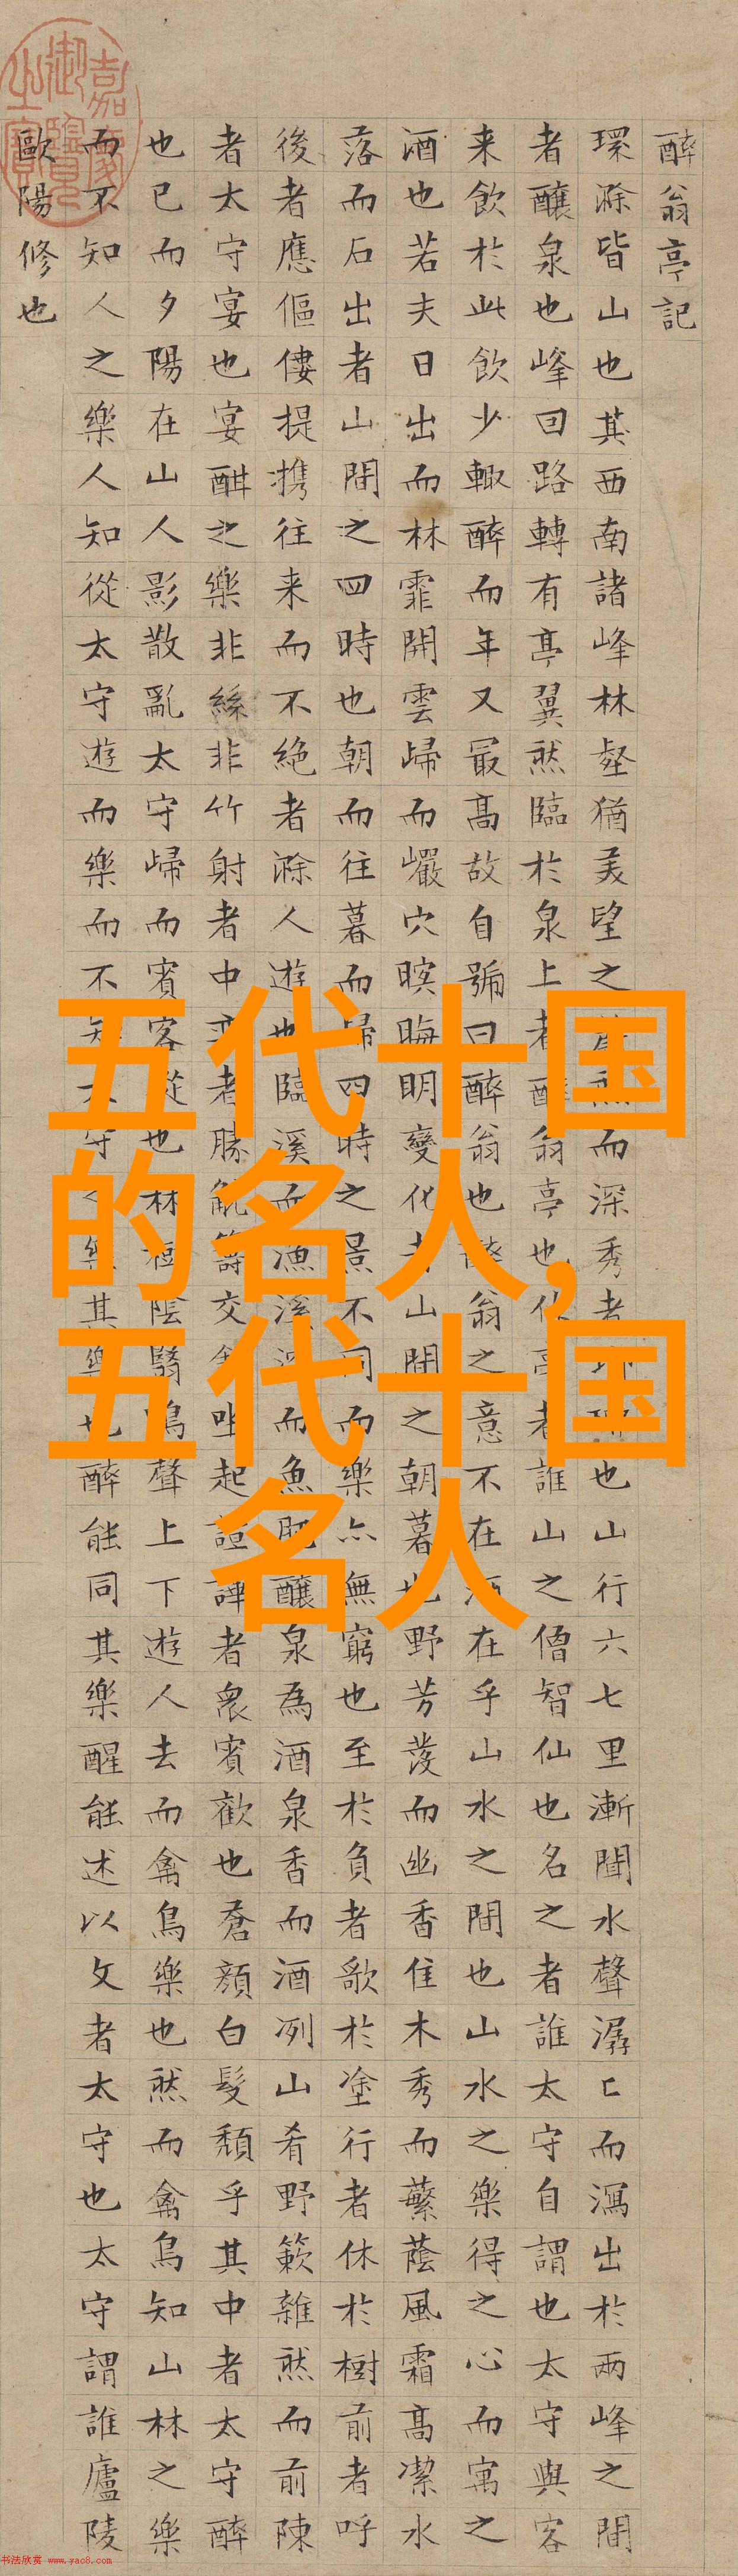 醉翁亭記
環滁皆山也其西南諸峰林壑猶美望之而深秀者也山行六七里漸聞水聲潺匕而瀉出於兩峰之間
者釀泉也峰回路轉有亭翼然臨於泉上者醉翁亭也作亭者誰山之僧智仙也名之者誰太守自謂也太守與客
来飲於此飲少輙醉而年又最高故自號曰醉翁也醉翁之意不在酒在乎山水之間也山水之樂得之心而寓之
酒也若夫日出而林霏開雲歸而巖穴暝晦明變化者山間之朝暮也野芳發而幽香佳木秀而蘩蔭風霜高潔水
落而石出者山間之四時也朝而往暮而歸四時之景不同而樂亦無窮也至於負者歌於塗行者休於樹前者呼
後者應傴僂提攜往来而不絶者滁人遊也臨溪而漁溪深而魚肥釀泉為酒泉香而酒冽山肴野簌雜然而前陳
者太守宴也宴酣之樂非絲非竹射者中弈者勝觥籌交錯坐起諠譁者衆賓歡也蒼顏白髮頹乎其中者太守醉
也已而夕陽在山人影散亂太守歸而賓客從也林陰翳鳴聲上下遊人去而禽鳥樂也然而禽鳥知山林之樂
而不知人之樂人知從太守遊而樂而不知太守之樂其樂也醉能同其樂醒能述以文者太守也太守謂誰廬陵
歐陽修也
嘉慶御覽之寶
五代十国
的名人,
五代十国
名人
书法欣赏 www.yac8.com